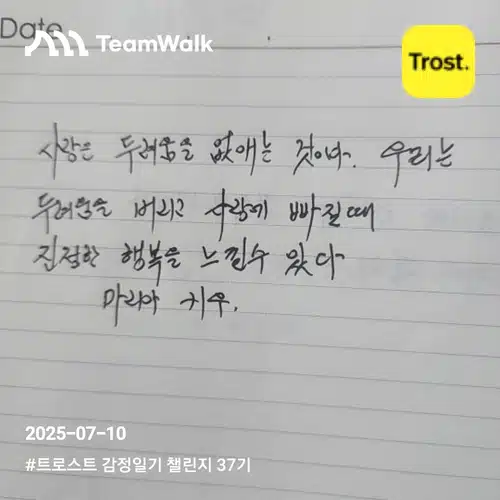 Date
TeamWalk
Trost.
사랑은 두려움을 없애는 것이다. 우리는
두려움을 버리고 사랑에 빠질때
진정한 행복을 느낄수 있다
마리아 키우.
2025-07-10
#트로스트 감정일기 챌린지 37기